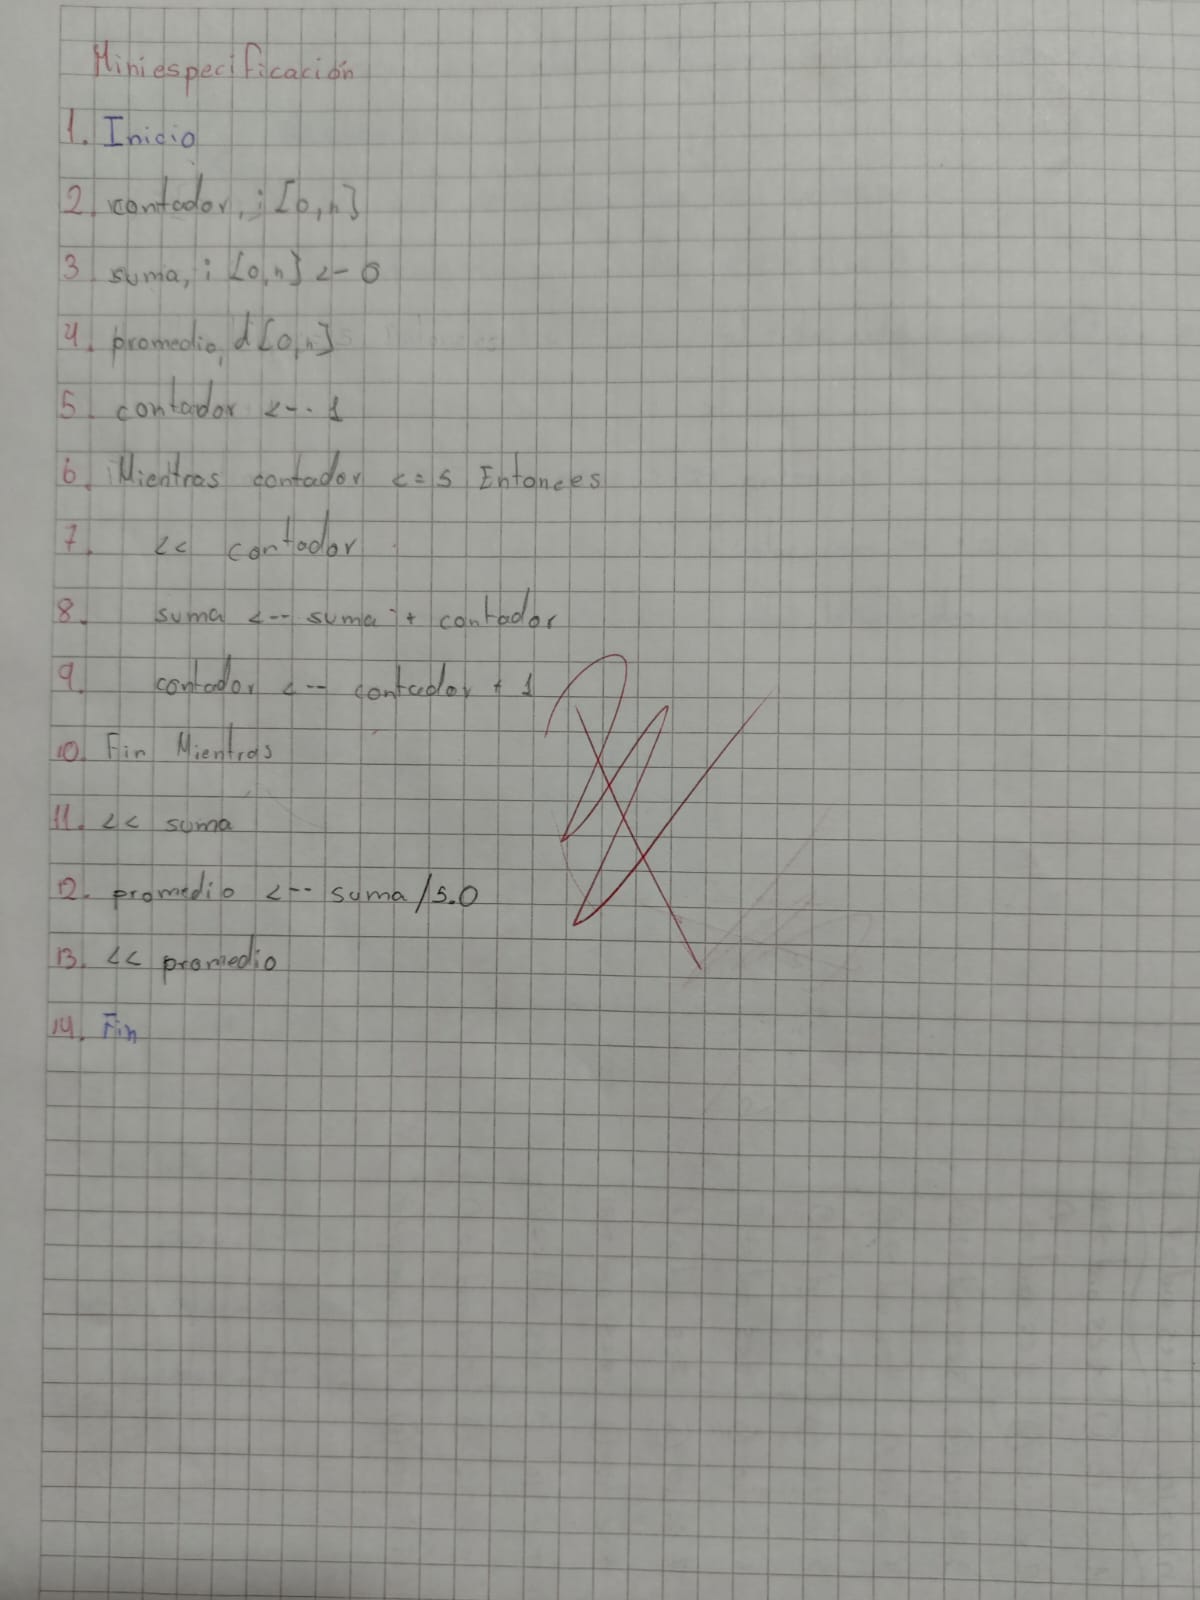 Miniespecificación
1. Inicio
2. contador, i [0,n]
3. suma, i [0,n] <- 0
4. promedio, d [0,n]
5. contador <-- 1
6. Mientras contador <= 5 Entonces
7. << contador
8. suma <-- suma + contador
9. contador <-- contador + 1
10. Fin Mientras
11. << suma
12. promedio <-- suma /5.0
13. << promedio
14. Fin